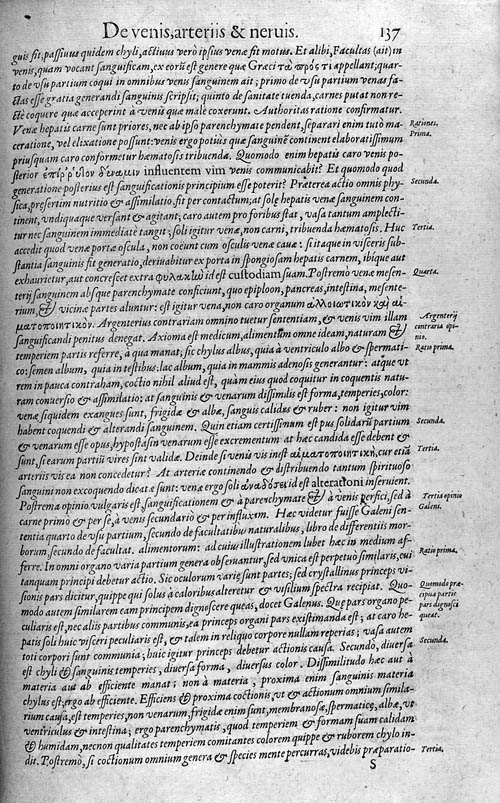 De venis, arteriis & neruis. 137
guis fit, passiuus quidem chyli, actiuus verò ipsius venæ fit motus. Et alibi, Facultas (ait) in
venis, quam vocant sanguificam, ex eorū est genere quæ Græci τῶ πρός τι appellant; quar-
to de vsu partium coqui in omnibus venis sanguinem ait; primo de vsu partium venas fa-
ctas esse gratia generandi sanguinis scripsit; quinto de sanitate tuenda, carnes putat non re-
ctè coquere quæ acceperint à venis quæ malè coxerunt. Authoritas ratione confirmatur.
Venæ hepatis carne sunt priores, nec ab ipso parenchymate pendent, separari enim tutò ma-
ceratione, vel elixatione possunt: venis ergo potiùs quæ sanguinē continent elaboratissimum
priusquam caro conformetur hæmatosis tribuenda. Quomodo enim hepatis caro venis po-
sterior influentem vim venis communicabit? Et quomodo quod
generatione posterius est sanguificationis principium esse poterit? Præterea actio omnis phy-
sica, præsertim nutritio & assimilatio fit per contactum; at solæ hepatis venæ sanguinem con-
tinent, vndiquaque versant & agitant; caro autem pro foribus stat, vasa tantum amplecti-
tur nec sanguinem immediatè tangit: soli igitur venæ, non carni, tribuenda hæmatosis. Huc
accedit quod venæ portæ oscula, non coëunt cum osculis venæ cauæ: si itaque in visceris sub-
stantia sanguinis fit generatio, deriuabitur ex porta in spongiosam hepatis carnem, ibique aut
exhaurietur, aut concrescet extra φυλακὴν id est custodiam suam. Postremò venæ mesen-
terij sanguinem absque parenchymate conficiunt, quo epiploon, pancreas, intestina, mesente-
rium, & vicinæ partes aluntur: est igitur vena, non caro organum ἀλλοιωτικὸν καὶ αἱ-
ματοποιητικόν. Argenterius contrariam omnino tuetur sententiam, & venis vim illam
sanguificandi penitus denegat. Axioma est medicum, alimentum omne ideam, naturam &
temperiem partis referre, à qua manat; sic chylus albus, quia à ventriculo albo & spermati-
co: semen album, quia in testibus: lac album, quia in mammis adenosis generantur: atque vt
rem in pauca contraham, coctio nihil aliud est, quàm eius quod coquitur in coquentis natu-
ram conuersio & assimilatio; at sanguinis & venarum dissimilis est forma, temperies, color:
venæ siquidem exangues sunt, frigidæ & albæ, sanguis calidus & ruber: non igitur vim
habent coquendi & alterandi sanguinem. Quin etiam certissimum est pus solidarū partium
& venarum esse opus, hypostasin venarum esse excrementum at hæc candida esse debent &
sunt, si earum partiū vires sint validæ. Deinde si venis vis inest αἱματοποιητική, cur etiā
arteriis vis ea non concedetur? At arteriæ continendo & distribuendo tantum spirituoso
sanguini non excoquendo dicatæ sunt: venæ ergo soli ἀναδόσει id est alterationi inseruient.
Postrema opinio vulgaris est, sanguificationem & à parenchymate & à venis perfici, sed à
carne primò & per se, à venis secundariò & per influxum. Hæc videtur fuisse Galeni sen-
tentia quarto de vsu partium, secundo de facultatibus naturalibus, libro de differentiis mor-
borum, secundo de facultat. alimentorum: ad cuius illustrationem lubet hæc in medium af-
ferre. In omni organo varia partium genera obseruantur, sed vnica est perpetuo similaris, cui
tanquam principi debetur actio. Sic oculorum variæ sunt partes; sed crystallinus princeps vi-
sionis pars dicitur, quippe qui solus à caloribus alteretur & visilium spectra recipiat. Quo-
modo autem similarem eam principem dignoscere queas, docet Galenus. Quæ pars organo pe-
culiaris est, nec aliis partibus communis, ea princeps organi pars existimanda est; at caro he-
patis soli huic visceri peculiaris est, & talem in reliquo corpore nullam reperias; vasa autem
toti corpori sunt communia; huic igitur princeps debetur actionis causa. Secundò, diuersa
est chyli & sanguinis temperies, diuersa forma, diuersus color. Dissimilitudo hæc aut à
materia aut ab efficiente manat; non à materia, proxima enim sanguinis materia
chylus est; ergo ab efficiente. Efficiens & proxima coctionis, vt & actionum omnium simila-
rium causa, est temperies, non venarum, frigidæ enim sunt, membranosæ, spermaticæ, albæ, vt
ventriculus & intestina; ergo parenchymatis, quod temperiem & formam suam calidam
& humidam, necnon qualitates temperiem comitantes colorem quippe & ruborem chylo in-
dit. Postremò, si coctionum omnium genera & species mente percurras, videbis præparatio-
S
Rationes.
Prima.
Secunda.
Tertia.
Quarta.
Argenterij
contraria opi-
nio.
Ratio prima.
Secunda.
Tertia.
Tertia opinio
Galeni.
Ratio prima.
Quomodo præ-
cipua partis
pars dignosci
queat.
Secunda.
Tertia.